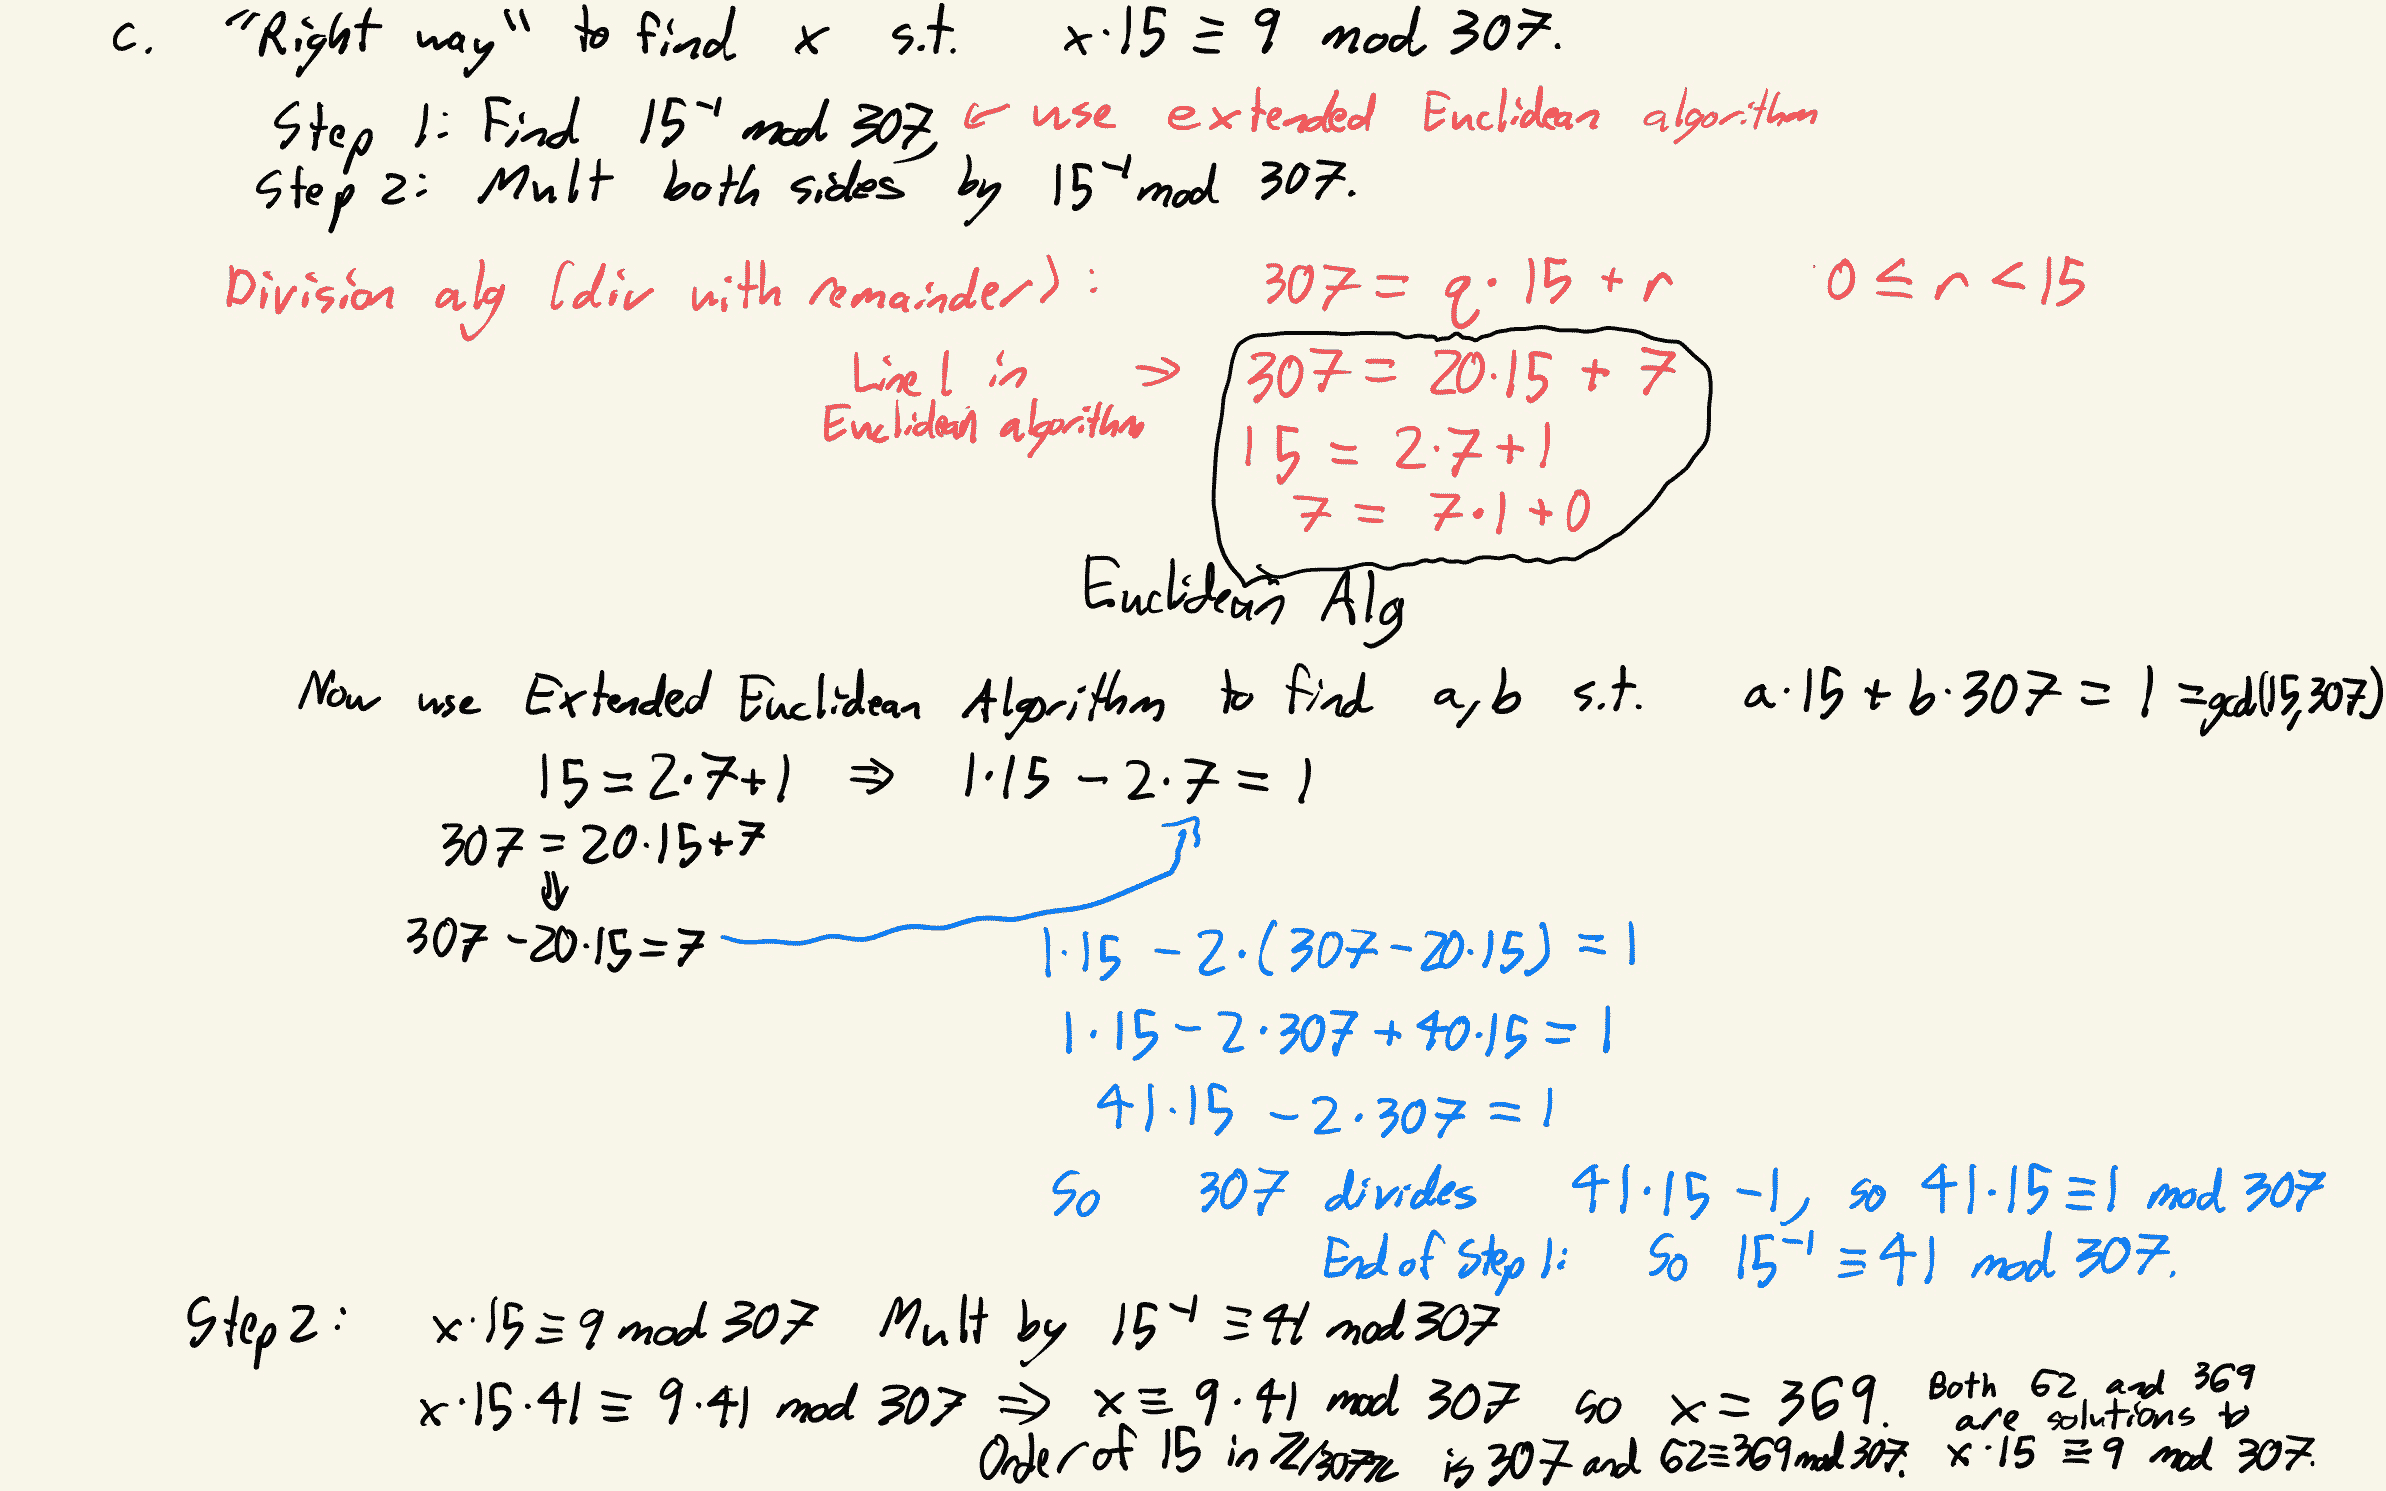 c. "Right way" to find x s.t. x·15 ≡ 9 mod 307.
Step 1: Find 15⁻¹ mod 307, ← use extended Euclidean algorithm
Step 2: Mult both sides by 15⁻¹ mod 307.
Division alg (div with remainder): 307 = q·15 + r 0 ≤ r < 15
Line 1 in Euclidean algorithm ⇒ 307 = 20·15 + 7
15 = 2·7+1
7 = 7·1+0
Euclidean Alg
Now use Extended Euclidean Algorithm to find a,b s.t. a·15 + b·307 = 1 = gcd(15,307)
15 = 2·7+1 ⇒ 1·15 - 2·7 = 1
307 = 20·15+7
⇓
307 - 20·15 = 7
1·15 - 2·(307 - 20·15) = 1
1·15 - 2·307 + 40·15 = 1
41·15 - 2·307 = 1
So 307 divides 41·15 - 1, so 41·15 ≡ 1 mod 307
End of Step 1: So 15⁻¹ ≡ 41 mod 307.
Step 2: x·15 ≡ 9 mod 307 Mult by 15⁻¹ ≡ 41 mod 307
x·15·41 ≡ 9·41 mod 307 ⇒ x ≡ 9·41 mod 307 so x = 369.
Order of 15 in ℤ/307ℤ is 307 and 62 ≡ 369 mod 307.
Both 62 and 369
are solutions to
x·15 ≡ 9 mod 307.